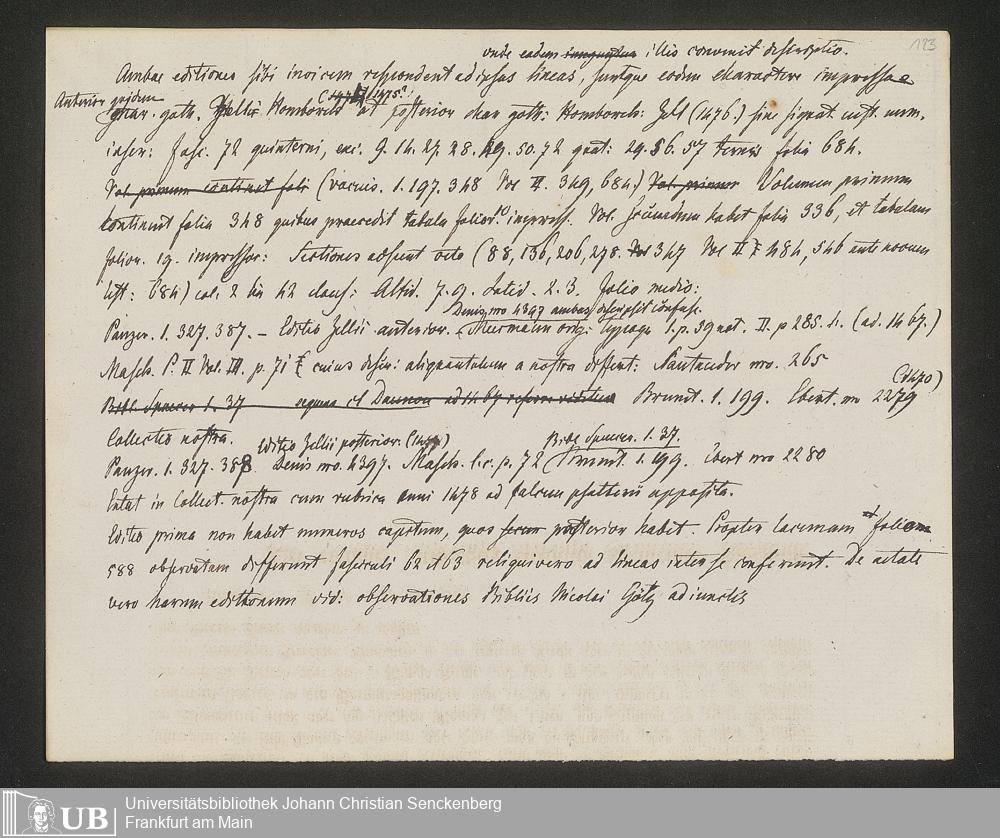 123
unde eadem illis convenit descriptio.
Ambae editiones sibi invicem respondent ad ipsas lineas, suntque eodem charactere impressae
Anterior quidem (1475?)
char. goth. Homborch et posterior char goth: Homborch: Zell (1476.) sine signat. cust. num.
inser: Fasc. 72 quinterni, exc. 9. 14. 27. 28. 49. 50. 72 quat: 29. 36. 57 terni folia 684.
Vol. primum continet foli (vacuis. 1. 197. 348 Vol II. 349, 684.) Vol. primum Volumen primum
continet folia 348 quibus praecedit tabula folior. 10 impress. Vol. secundum habet folia 336, et tabulam
folior. 19. impressor: Sectiones adsunt octo (88, 136, 206, 278. 347 Vol II 484, 546 ante novum
test: 684) col. 2 lin 42 claus: Altid. 7. 9. Latid. 2. 3. folio medio:
Denis nro 4397 ambas descripsit confuse.
Panzer. 1. 327. 387. – Editio Zellii anterior. Meermann orig: typogr. 1. p. 59 not. II. p 285. (ad. 1467.)
Masch P. II Vol. III. p. 71 cuius descr: aliquantulum a nostra differt: Santander nro. 265
(1470)
Bibl. Spencer 1. 37 et Daunou ad 1467 referre Brunet. 1. 199. Ebert. nro 2279
Collectio nostra.
Editio Zellii posterior. Bibl. Spencer. 1. 37.
Panzer. 1. 327. 388 Denis nro. 4397. Masch. l. c. p. 72 Brunet. 1. 199. Ebert nro 2280
Extat in Collect. nostra cum rubrica anni 1478 ad calcem psalterii apposita.
Editio prima non habet numeros capitum, quos posterior habet. Propter lacunam folium
588 observatam differunt fasciculi 62 et 63 reliqui vero ad lineas inter se conferunt. De aetate
vero harum editionum vid: observationes Bibliis Nicolai Götz adiunctis
UB
Universitätsbibliothek Johann Christian Senckenberg
Frankfurt am Main